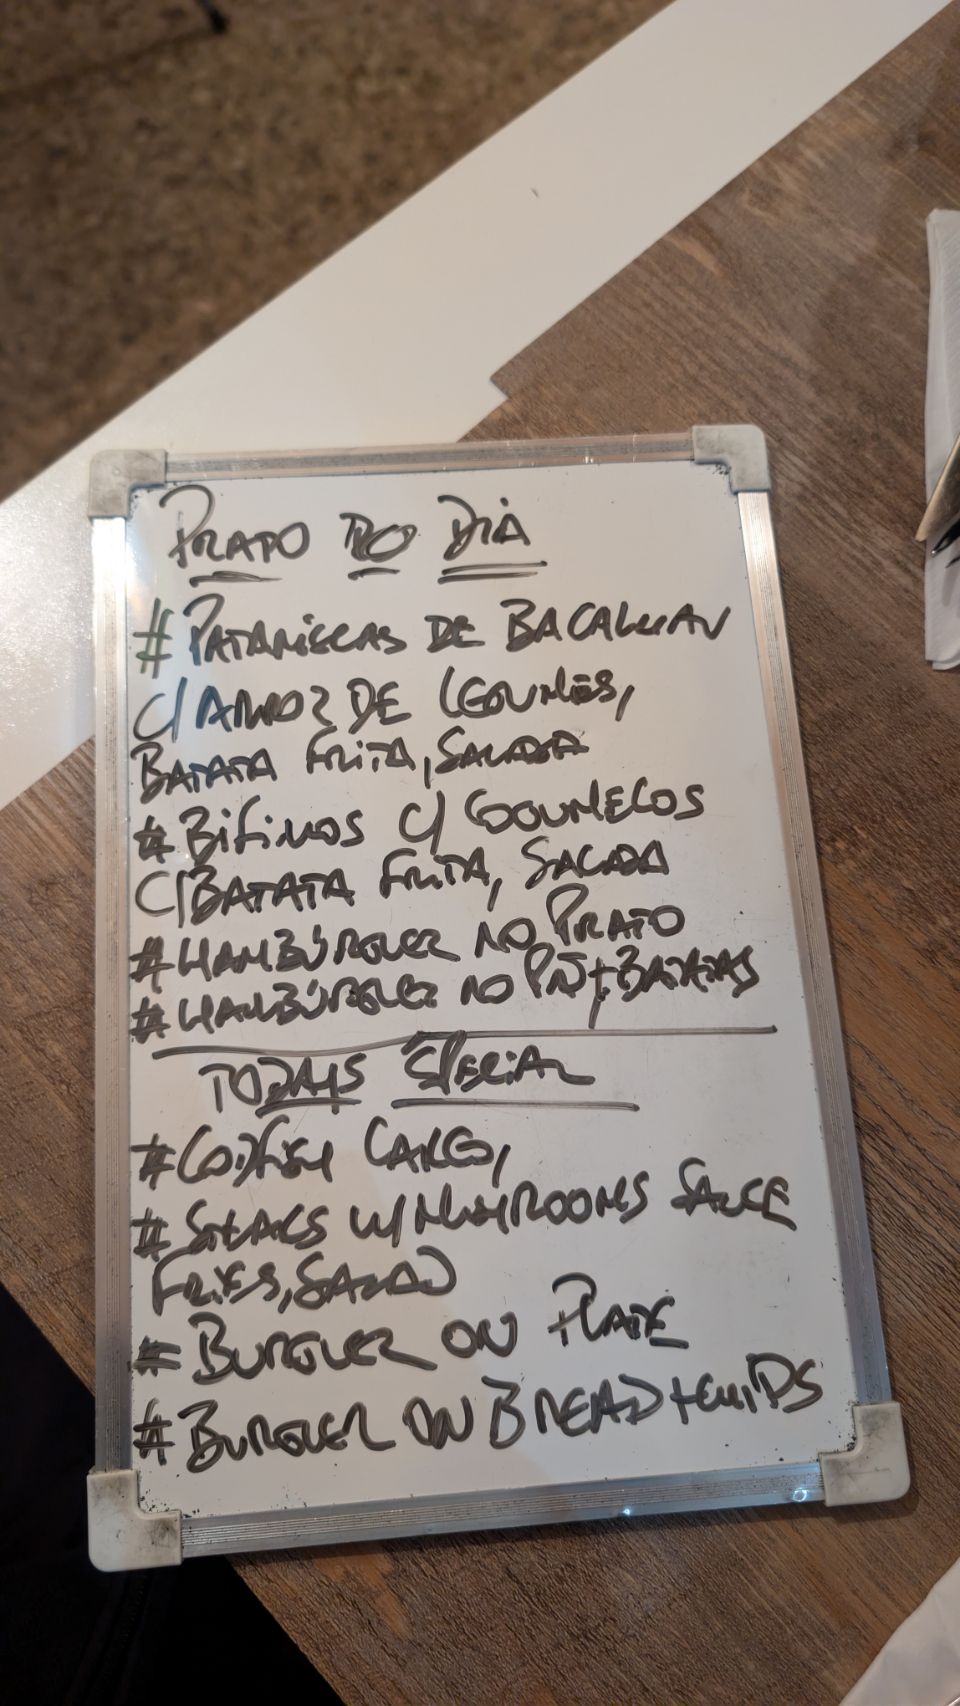 PRATO DO DIA
# PATANISCAS DE BACALHAU
C/ARROZ DE LEGUMES,
BATATA FRITA, SALADA
# BIFINHOS C/ COGUMELOS
C/BATATA FRITA, SALADA
# HAMBÚRGUER NO PRATO
# HAMBÚRGUER NO PÃO + BATATAS
TODAYS SPECIAL
# CODFISH CAKES,
# STEAKS W/MUSHROOMS SAUCE
FRIES, SALAD
# BURGUER ON PLATE
# BURGUER ON BREAD + CHIPS